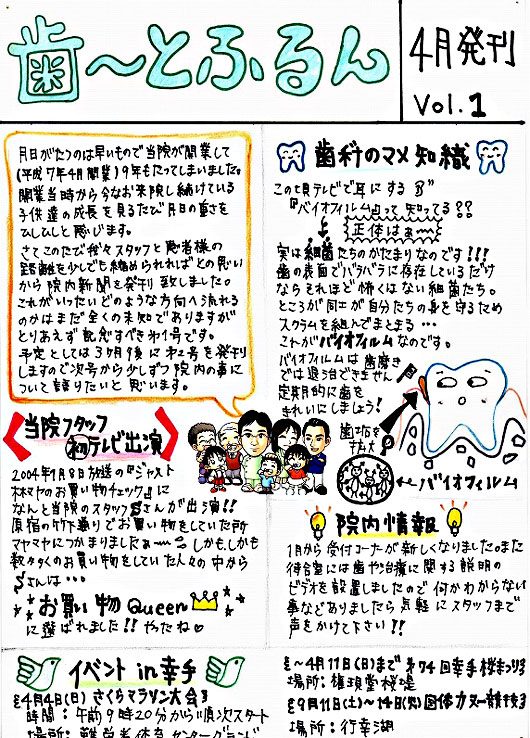 歯〜とふるん
4月発刊
Vol.1
月日がたつのは早いもので当院が開業して
(平成7年4月開業)9年もたってしまいました。
開業当時から今なお来院し続けている
子供達の成長を見るたび月日の重さを
ひしひしと感じます。
さてこのたび我々スタッフと患者様の
距離を少しでも縮められればとの思い
から院内新聞を発刊致しました。
これがいったいどのような方向へ流れる
のかはまだ全くの未知でありますが
とりあえず記念すべき第1号です。
予定としては3ヶ月後に第2号を発刊
しますので次号から少しずつ院内の事に
ついて語りたいと思います。
当院スタッフ
初テレビ出演
2004年1月8日放送の『ジャスト
木村ヤのお買い物チェック』に
なんと当院のスタッフSさんが出演!!
原宿の竹下通りでお買い物をしていた所
マヤマヤにつかまりましたぁー しかも、しかも
数々多くのお買い物をしていた人々の中から
Sさんは…
お買い物Queen
に選ばれました!!やったね♡
歯科のマメ知識
この頃テレビで耳にする
『バイオフィルム』って知ってる??
正体はぁ〜
実は細菌たちのかたまりなのです!!!
歯の表面でバラバラに存在しているだけ
ならそれほど怖くはない細菌たち。
ところが同士が自分たちの身を守るため
スクラムを組んでまとまる…
これがバイオフィルムなのです。
バイオフィルムは歯磨き
では退治できません
定期的に歯を
きれいにしましょう!
歯垢を
拡大
バイオフィルム
院内情報
1月から受付コーナーが新しくなりました。また
待合室には歯や治療に関する説明の
ビデオを設置しましたので何かわからない
事などありましたら気軽にスタッフまで
声をかけて下さい!!
イベントin幸手
《4月4日(日)さくらマラソン大会》
時間:午前9時20分から順次スタート
《〜4月11日(日)まで第74回幸手桜まつり》
場所:権現堂桜堤
《9月11日(土)〜14日(火)国体カヌー競技》
場所:行幸湖